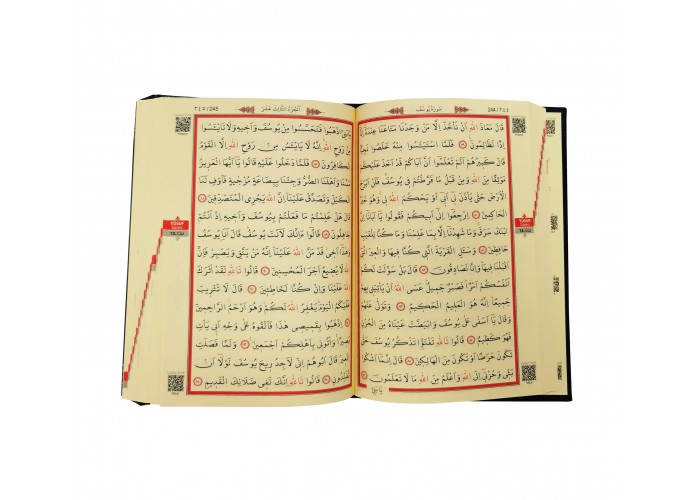 244/٢٤٤
سُورَةُ يُوسُفَ
قَالَ مَعَاذَ اللهِ اَنْ نَأْخُذَ اِلَّا مَنْ وَجَدْنَا مَتَاعَنَا عِنْدَهُ اِنَّا
اِذًا لَظَالِمُونَ ﴿٧٩﴾ فَلَمَّا اسْتَيْـَٔسُوا مِنْهُ خَلَصُوا نَجِيًّا
قَالَ كَبِيرُهُمْ اَلَمْ تَعْلَمُوا اَنَّ اَبَاكُمْ قَدْ اَخَذَ عَلَيْكُمْ
مَوْثِقًا مِنَ اللهِ وَمِنْ قَبْلُ مَا فَرَّطْتُمْ فِي يُوسُفَ فَلَنْ اَبْرَحَ
الْاَرْضَ حَتّٰى يَأْذَنَ لِي اَبِي اَوْ يَحْكُمَ اللهُ لِي وَهُوَ خَيْرُ
الْحَاكِمِينَ ﴿٨٠﴾ اِرْجِعُوا اِلٰى اَبِيكُمْ فَقُولُوا يَا اَبَانَا اِنَّ
ابْنَكَ سَرَقَ وَمَا شَهِدْنَا اِلَّا بِمَا عَلِمْنَا وَمَا كُنَّا لِلْغَيْبِ
حَافِظِينَ ﴿٨١﴾ وَسْـَٔلِ الْقَرْيَةَ الَّتِي كُنَّا فِيهَا وَالْعِيرَ الَّتِي
اَقْبَلْنَا فِيهَا وَاِنَّا لَصَادِقُونَ ﴿٨٢﴾ قَالَ بَلْ سَوَّلَتْ لَكُمْ
اَنْفُسُكُمْ اَمْرًا فَصَبْرٌ جَمِيلٌ عَسَى اللهُ اَنْ يَأْتِيَنِي بِهِمْ
جَمِيعًا اِنَّهُ هُوَ الْعَلِيمُ الْحَكِيمُ ﴿٨٣﴾ وَتَوَلّٰى عَنْهُمْ
وَقَالَ يَا اَسَفٰى عَلٰى يُوسُفَ وَابْيَضَّتْ عَيْنَاهُ مِنَ الْحُزْنِ
فَهُوَ كَظِيمٌ ﴿٨٤﴾ قَالُوا تَاللهِ تَفْتَؤُا تَذْكُرُ يُوسُفَ حَتّٰى
تَكُونَ حَرَضًا اَوْ تَكُونَ مِنَ الْهَالِكِينَ ﴿٨٥﴾ قَالَ اِنَّمَا اَشْكُوا
بَثِّي وَحُزْنِي اِلَى اللهِ وَاَعْلَمُ مِنَ اللهِ مَا لَا تَعْلَمُونَ ﴿٨٦﴾
يَا بَنِيَّ
اَلْجُزْءُ الثَّالِثُ عَشَرَ
٢٤٥/245
يَا بَنِيَّ اذْهَبُوا فَتَحَسَّسُوا مِنْ يُوسُفَ وَاَخِيهِ وَلَا تَايْـَٔسُوا
مِنْ رَوْحِ اللهِ اِنَّهُ لَا يَايْـَٔسُ مِنْ رَوْحِ اللهِ اِلَّا الْقَوْمُ
الْكَافِرُونَ ﴿٨٧﴾ فَلَمَّا دَخَلُوا عَلَيْهِ قَالُوا يَا اَيُّهَا الْعَزِيزُ
مَسَّنَا وَاَهْلَنَا الضُّرُّ وَجِئْنَا بِبِضَاعَةٍ مُزْجٰيةٍ فَاَوْفِ لَنَا
الْكَيْلَ وَتَصَدَّقْ عَلَيْنَا اِنَّ اللهَ يَجْزِي الْمُتَصَدِّقِينَ ﴿٨٨﴾
قَالَ هَلْ عَلِمْتُمْ مَا فَعَلْتُمْ بِيُوسُفَ وَاَخِيهِ اِذْ اَنْتُمْ
جَاهِلُونَ ﴿٨٩﴾ قَالُوا ءَاِنَّكَ لَاَنْتَ يُوسُفُ قَالَ اَنَا يُوسُفُ
وَهٰذَا اَخِي قَدْ مَنَّ اللهُ عَلَيْنَا اِنَّهُ مَنْ يَتَّقِ وَيَصْبِرْ فَاِنَّ
اللهَ لَا يُضِيعُ اَجْرَ الْمُحْسِنِينَ ﴿٩٠﴾ قَالُوا تَاللهِ لَقَدْ اٰثَرَكَ
اللهُ عَلَيْنَا وَاِنْ كُنَّا لَخَاطِـِٔينَ ﴿٩١﴾ قَالَ لَا تَثْرِيبَ
عَلَيْكُمُ الْيَوْمَ يَغْفِرُ اللهُ لَكُمْ وَهُوَ اَرْحَمُ الرَّاحِمِينَ
﴿٩٢﴾ اِذْهَبُوا بِقَمِيصِي هٰذَا فَاَلْقُوهُ عَلٰى وَجْهِ اَبِي يَأْتِ
بَصِيرًا وَأْتُونِي بِاَهْلِكُمْ اَجْمَعِينَ ﴿٩٣﴾ وَلَمَّا فَصَلَتِ
الْعِيرُ قَالَ اَبُوهُمْ اِنِّي لَاَجِدُ رِيحَ يُوسُفَ لَوْلَا اَنْ
تُفَنِّدُونِ ﴿٩٤﴾ قَالُوا تَاللهِ اِنَّكَ لَفِي ضَلَالِكَ الْقَدِيمِ ﴿٩٥﴾
YUSUF
YUSUF